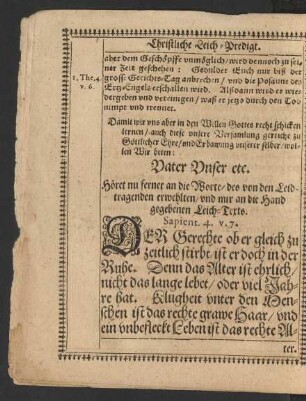 Christliche Leich-Predigt.
aber dem Geschöpffe vnmöglich/ wird dennoch zu sei-
ner Zeit geschehen: Geduldet Euch nur biß der
1. The. 4.
v. 6.
grosse Gerichts-Tag anbrechen/ vnd die Posaune des
Ertz-Engels erschallen wird. Alßdann wird er wie-
dergeben vnd vereinigen/ waß er jetzo durch den To-
vnd trennet.
Damit wir vns aber in den Willen Gottes recht schicken
lernen/ auch diese vnsere Versamlung gereiche zu
Göttlicher Ehre/ vnd Erbawung vnserer selber/ wol-
len Wir beten:
Vater Vnser etc.
Höret nu ferner an die Worte/ des von den Leid-
tragenden erwehlten/ vnd mir an die Hand
gegebenen Leich-Texts.
Sapient. 4. v. 7.
DER Gerechte ob er gleich zu
zeitlich stirbt ist er doch in der
Ruhe. Denn das Alter ist ehrlich/
nicht das lange lebet/ oder viel Jah-
re hat. Klugheit vnter den Men-
schen ist das rechte grawe Haar/ vnd
ein vnbefleckt Leben ist das rechte Al-
ter.